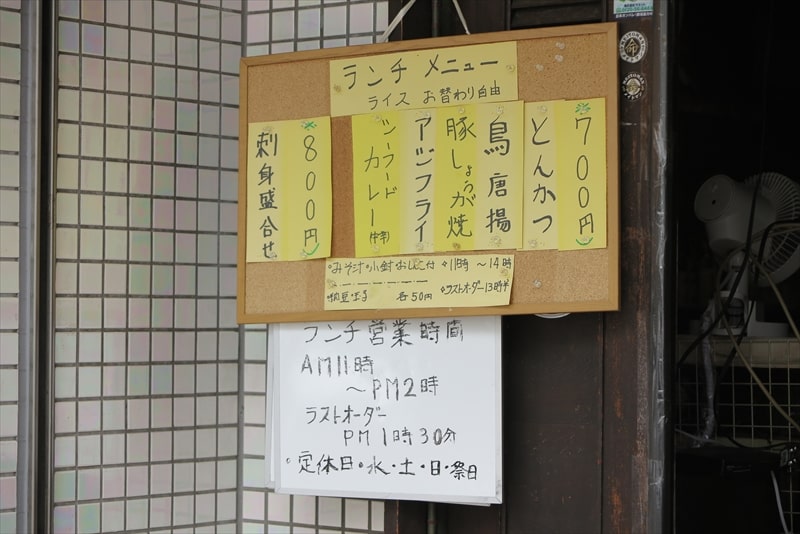 ランチ メニュー
ライス お替わり自由
700円
とんかつ
鳥唐揚
豚しょうが焼
アジフライ
シーフードカレー(中辛)
800円
刺身盛合せ
・みそ汁・小鉢・おしんこ付
・納豆・玉子 各50円
◦11時 ～14時
◦ラストオーダー13時半
ランチ営業時間
AM11時
～PM2時
ラストオーダー
PM1時30分
・定休日・水・土・日・祭日